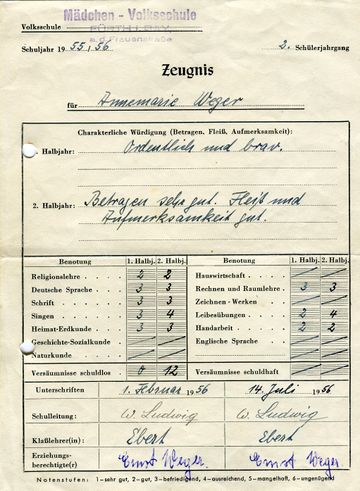 Mädchen - Volksschule
FÜRTH i. BAY
Volksschule
a. d. Frauenstraße
Schuljahr 1955/56 2. Schülerjahrgang
Zeugnis
für Annemarie Weger
Charakterliche Würdigung (Betragen, Fleiß, Aufmerksamkeit):
1. Halbjahr: Ordentlich und brav.
2. Halbjahr: Betragen sehr gut. Fleiß und
Aufmerksamkeit gut.
Benotung 1. Halbj. 2. Halbj. Benotung 1. Halbj. 2. Halbj.
Religionslehre 2 2 Hauswirtschaft
Deutsche Sprache 3 3 Rechnen und Raumlehre 3 3
Schrift 3 3 Zeichnen - Werken
Singen 3 4 Leibesübungen 2 4
Heimat-Erdkunde 3 3 Handarbeit 2 2
Geschichte-Sozialkunde Englische Sprache
Naturkunde
Versäumnisse schuldlos 0 12 Versäumnisse schuldhaft
Unterschriften 1. Februar 1956 14. Juli 1956
Schulleitung: W. Ludwig W. Ludwig
Klaßlehrer(in): Ebert Ebert
Erziehungs-
berechtigte(r) Ernst Weger Ernst Weger
Notenstufen: 1—sehr gut, 2—gut, 3—befriedigend, 4—ausreichend, 5—mangelhaft, 6—ungenügend